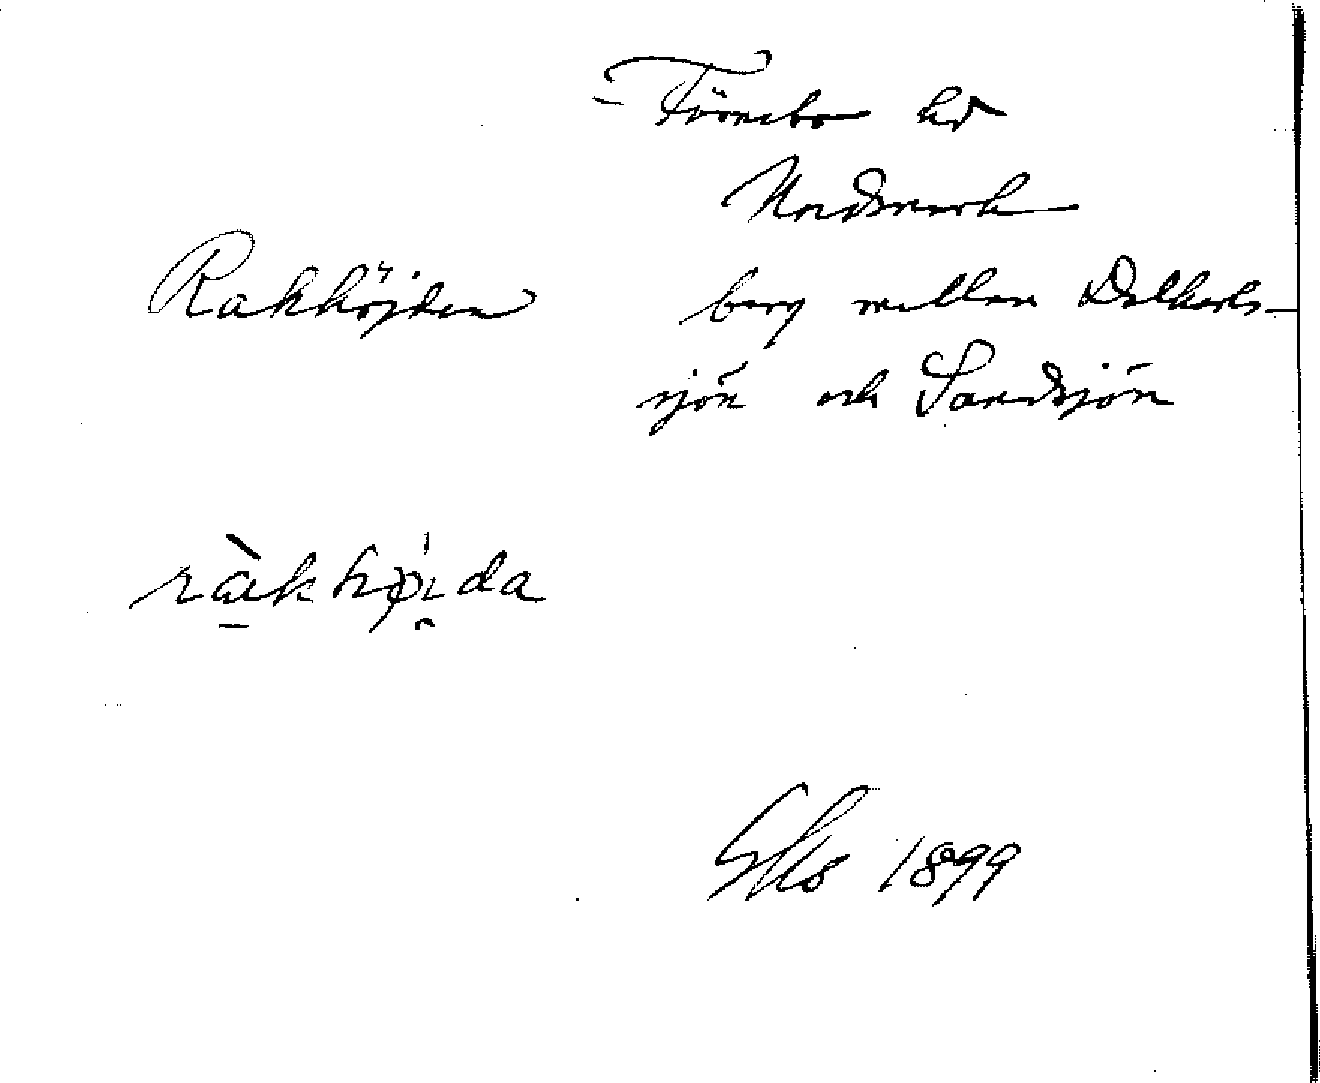 Färnebo hd
Nordmark
Rakhöjden berg mellan Dalkarls-
sjön och Sandsjön
ràkhøi̯da
Gks 1899